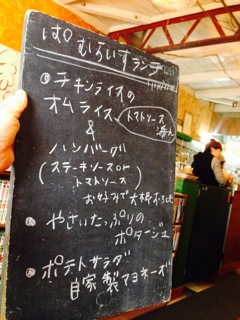 ぱ〇むらいすランチ
・チキンライスの
オムライス
トマトソース
添え
&
ハンバーグ
(ステーキソースor
トマトソース
お好みで大根おろし)
・やさいたっぷりの
ポタージュ
・ポテトサラダ
自家製マヨネーズ